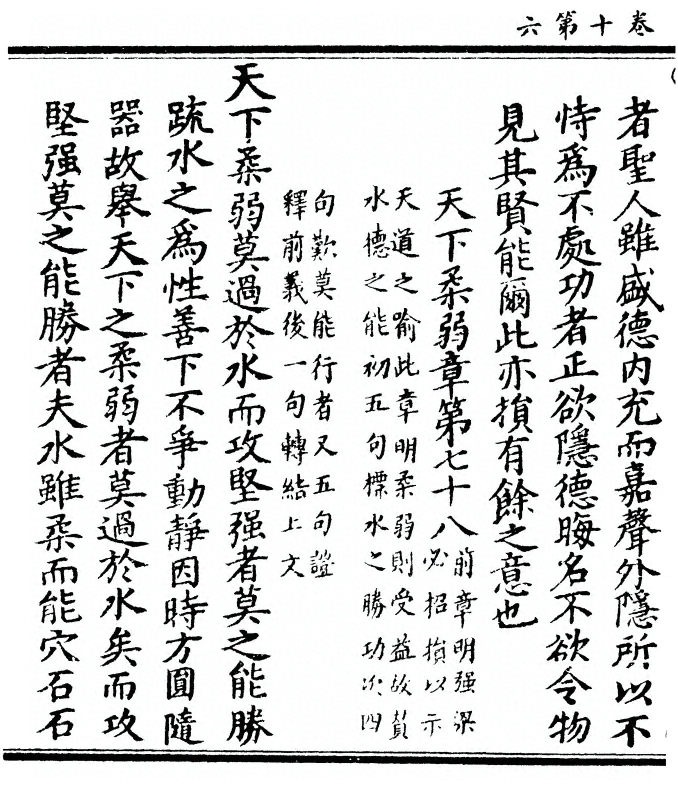 卷十第六
者聖人雖盛德内充而嘉聲外隱所以不
恃爲不處功者正欲隱德晦名不欲令物
見其賢能爾此亦損有餘之意也
天下柔弱章第七十八
前章明强梁
必招損以示
天道之喻此章明柔弱則受益故贊
水德之能初五句標水之勝功次四
句歎莫能行者又五句證
釋前義後一句轉結上文
天下柔弱莫過於水而攻堅强者莫之能勝
䟽水之爲性善下不爭動靜因時方圓隨
器故舉天下之柔弱者莫過於水矣而攻
堅强莫之能勝者夫水雖柔而能穴石石